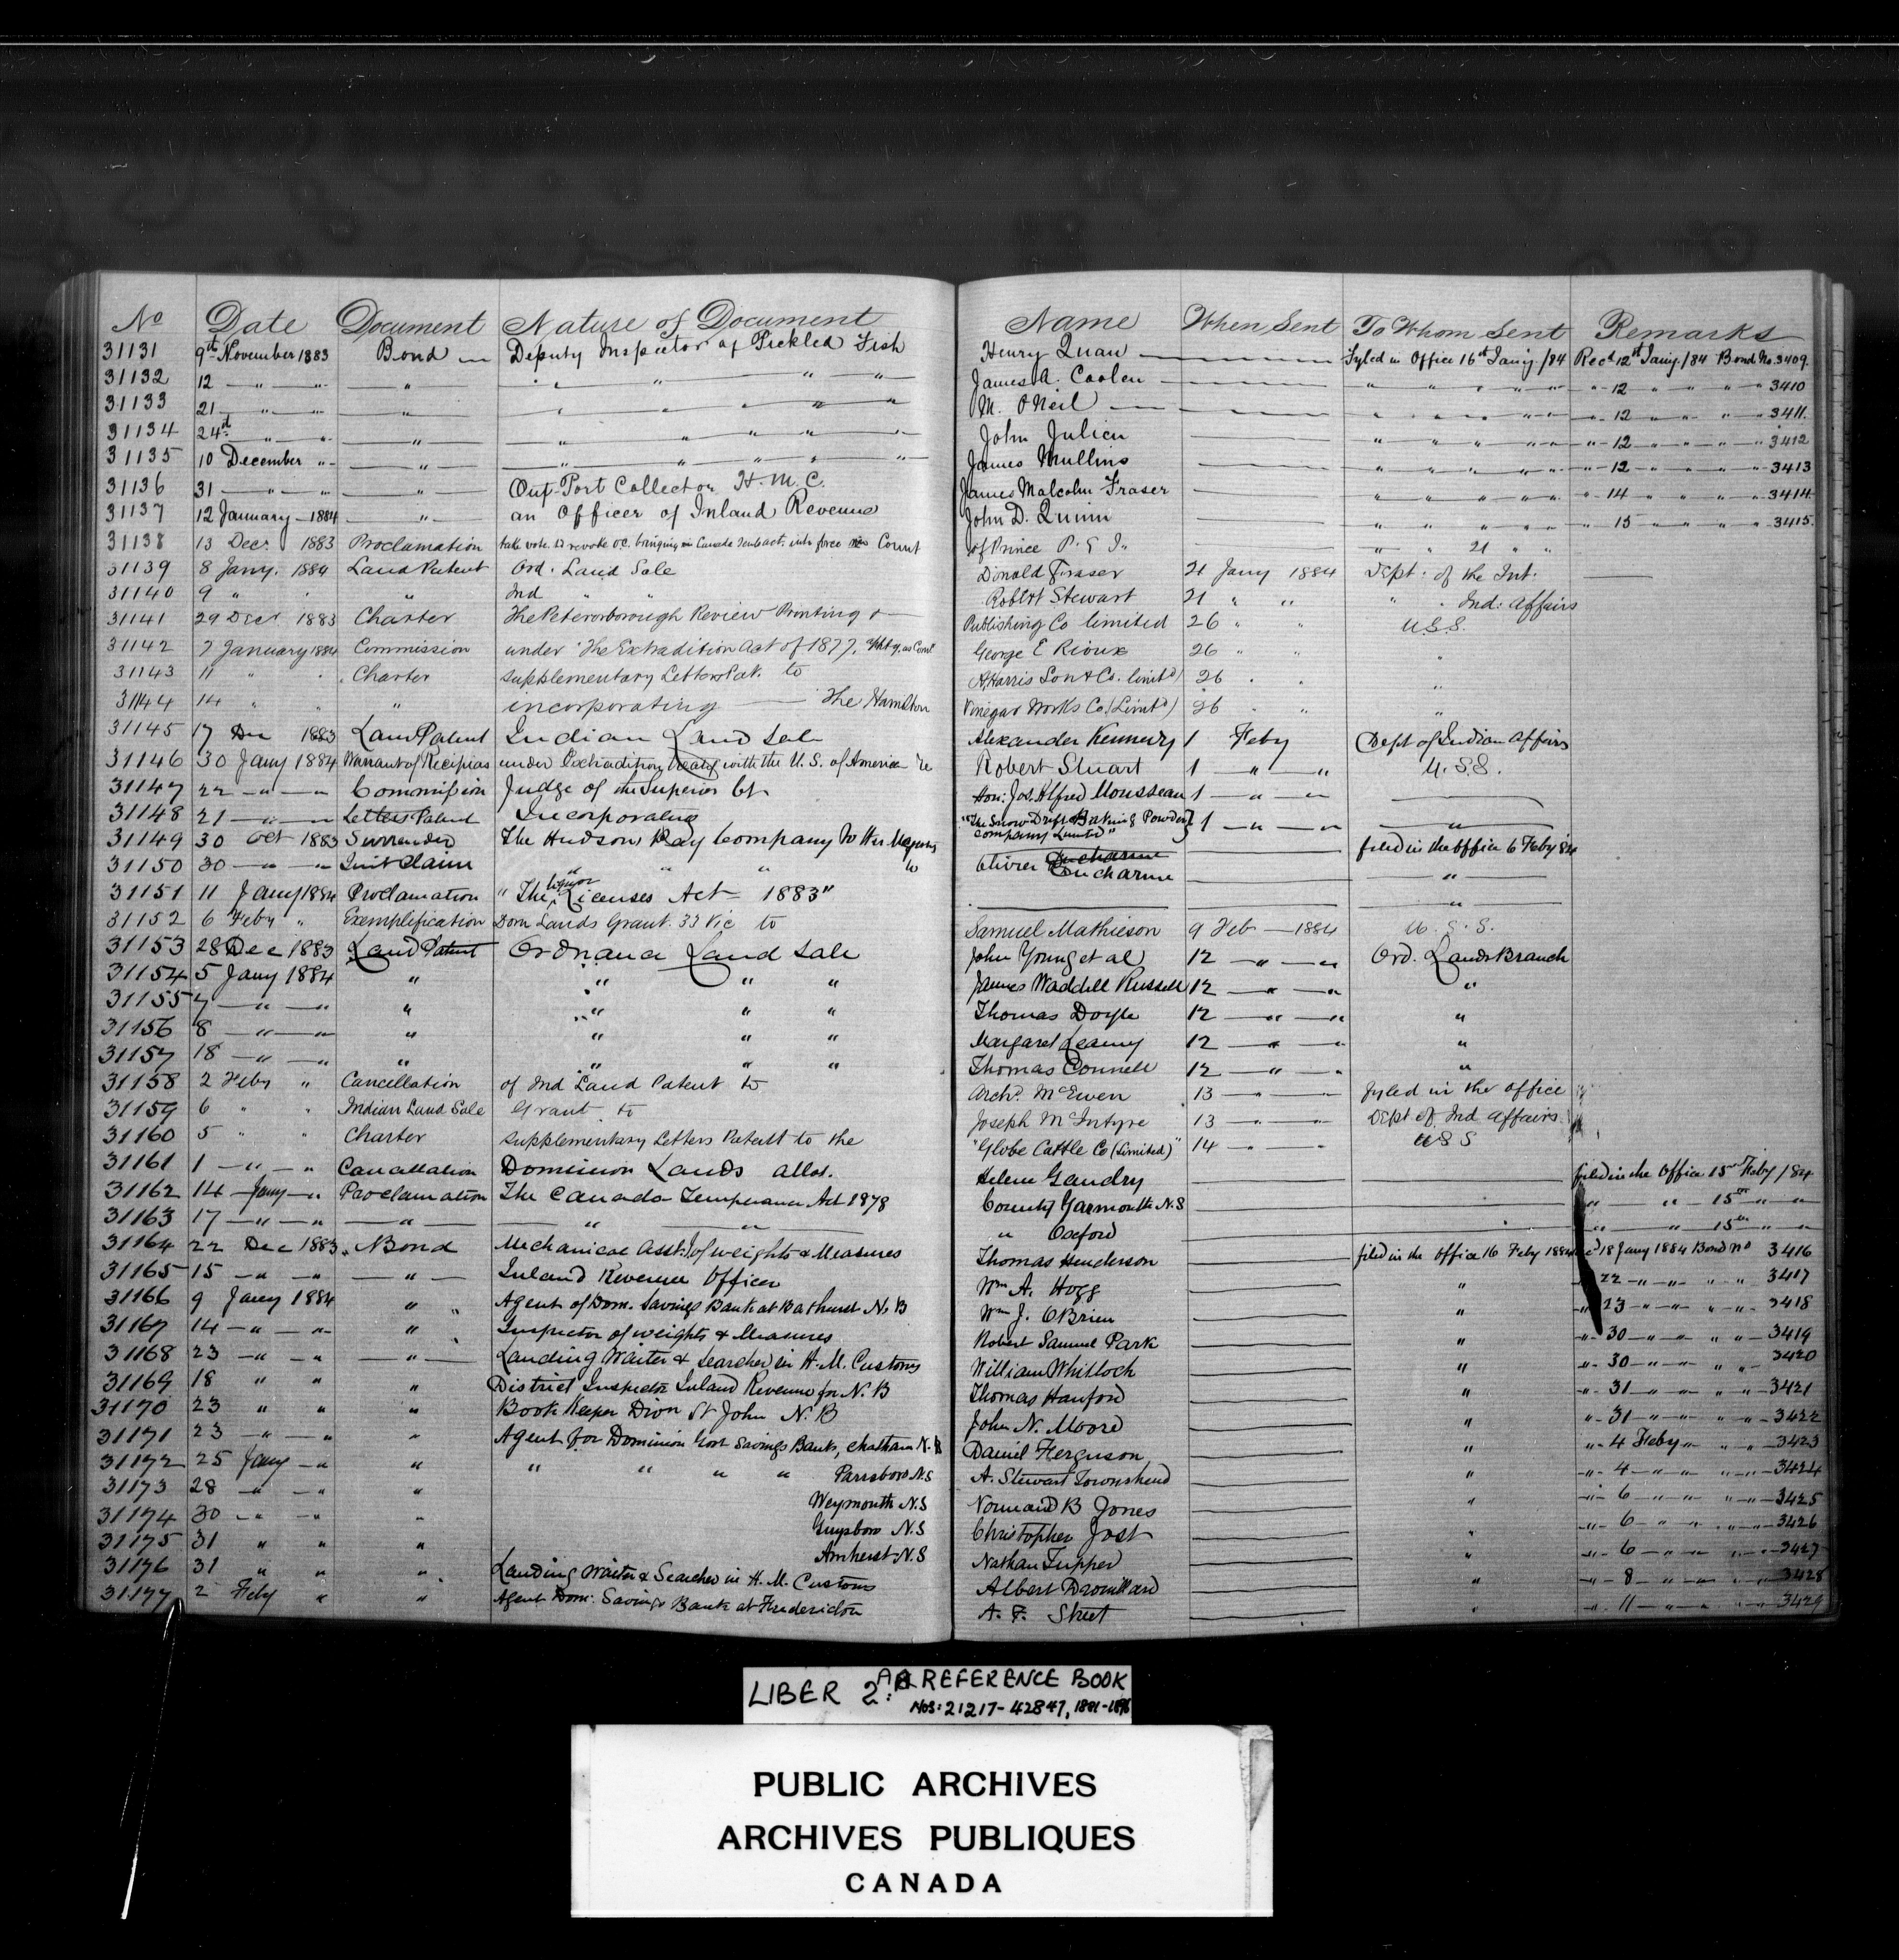 No Date Document Nature of Document Name When Sent To Whom Sent Remarks
31131 9th November 1883 Bond Deputy Inspector of Pickled Fish Henry Quan Fyled in Office 16th Jany /84 Recd 12th Jany /84 Bond No. 3409
31132 12 " " " " " " " James A. Coolen " " " " " " 12 " " " " 3410
31133 21 " " " " " " " M. O'Neil " " " " " " 12 " " " " 3411
31134 24th " " " " " " " John Julien " " " " " " 12 " " " " 3412
31135 10 December " " " " " " " James Mullins " " " " " " 12 " " " " 3413
31136 31 " " " Out-Port Collector H.M.C. James Malcolm Fraser " " " " " " 14 " " " " 3414
31137 12 January 1884 " an Officer of Inland Revenue John D. Quinn " " " " " " 15 " " " " 3415
31138 13 Decr 1883 Proclamation take vote to revoke O.C. bringing in Canada Tempact. into force in Count of Prince P.E.I. " " 21 " "
31139 8 Jany. 1884 Land Patent Ord. Land Sale Donald Fraser 21 Jany 1884 Dept. of the Int.
31140 9 " " " Ind " " Robert Stewart 21 " " " Ind: Affairs
31141 29 Decr 1883 Charter The Peterborough Review Printing & Publishing Co limited 26 " " U.S.S.
31142 7 January 1884 Commission under "The Extradition Act of 1877, George E Rioux 26 " " "
31143 11 " " Charter supplementary Letters Pat. to A. Harris Son & Co. limitd) 26 " " "
31144 14 " " " incorporating The Hamilton Vinegar Works Co. (Limtd) 26 " " "
31145 17 Dec 1883 Land Patent Indian Land Sale Alexander Kennedy 1 Feby Dept of Indian Affairs
31146 30 Jany 1884 Warrant of Recipias under Extradition treaty with the U.S. of America re Robert Stuart 1 " " U.S.S.
31147 22 " " Commission Judge of the Superior Ct. Hon: Jos. Alfred Mousseau 1 " "
31148 21 " " Letters Patent Incorporating "The Snow Drift Baking Powder Company Limited" 1 " " "
31149 30 Oct 1883 Surrender The Hudson Bay Company to Her Majesty filed in the Office 6 Feby 84
31150 30 " " Quit Claim " " " to Olivier Ducharme Ducharme "
31151 11 Jany 1884 Proclamation "The Liquor Licenses Act 1883" "
31152 6 Feby " Exemplification Dom Lands Grant. 33 Vic to Samuel Mathieson 9 Feb 1884 U.S.S.
31153 28 Dec 1883 Land Patent Ordnance Land Sale John Young et al 12 " " Ord. Lands Branch
31154 5 Jany 1884 " " " " James Waddell Russell 12 " " "
31155 7 " " " " " " Thomas Doyle 12 " " "
31156 8 " " " " " " Margaret Leamy 12 " " "
31157 18 " " " " " " Thomas Connell 12 " " "
31158 2 Feby " Cancellation of Ind Land Patent to Archd. McEwen 13 " " Fyled in the office
31159 6 " " Indian Land Sale Grant to Joseph McIntyre 13 " " Dept of Ind Affairs
31160 5 " " Charter supplementary Letters Patent to the "Globe Cattle Co (Limited)" 14 " " U S S
31161 1 " " Cancellation Dominion Lands allot. Helene Gaudry filed in the Office 15th Feby /84
31162 14 Jany " Proclamation The Canada Temperance Act 1878 County Yarmouth N.S " " 15th " "
31163 17 " " " " " " Oxford " " 15th " "
31164 22 Dec 1883 Bond Mechanical Asst. of Weights & Measures Thomas Henderson filed in the Office 16 Feby 1884 18 Jany 1884 Bond No 3416
31165 15 " " " Inland Revenue Officer Wm A. Hogg " 22 " " " " 3417
31166 9 Jany 1884 " Agent of Dom. Savings Bank at Bathurst N.B Wm J. O'Brien " " 23 " " " " 3418
31167 14 " " " Inspector of Weights & Measures Robert Samuel Park " " 30 " " " " 3419
31168 23 " " " Landing Waiter & Searcher in H.M. Customs William Whitlock " " 30 " " " " 3420
31169 18 " " " District Inspector Inland Revenue for N.B Thomas Hanford " " 31 " " " " 3421
31170 23 " " " Book Keeper Divn St John N.B John N. Moore " " 31 " " " " 3422
31171 23 " " " Agent for Dominion Govt Savings Bank, Chatham N.B Daniel Ferguson " " 4 Feby " " " 3423
31172 25 Jany " " " " " " Parrsboro N.S A. Stewart Townshend " " 4 " " " " 3424
31173 28 " " " Weymouth N.S Normand B Jones " " 6 " " " " 3425
31174 30 " " " Guysboro N.S Christopher Jost " " 6 " " " " 3426
31175 31 " " " Amherst N.S Nathan Tupper " " 6 " " " " 3427
31176 31 " " " Landing Waiter & Searcher in H.M. Customs Albert Drouillard " " 8 " " " " 3428
31177 2 Feby " " Agent Dom: Savings Bank at Fredericton A. F. Street " " 11 " " " " 3429
LIBER 2: AB REFERENCE BOOK
NOS: 21217-42847, 1881-1896
PUBLIC ARCHIVES
ARCHIVES PUBLIQUES
CANADA